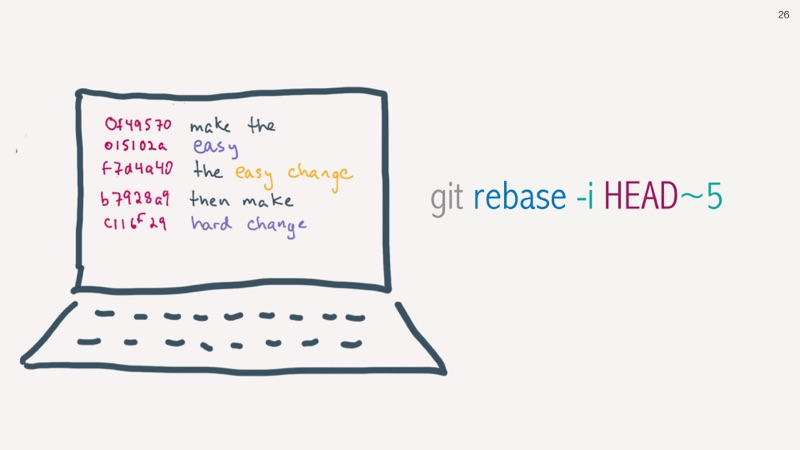 26
0f49570 make the
015102a easy
f7d4a40 the easy change
b7928a9 then make
c116f29 hard change
git rebase -i HEAD~5